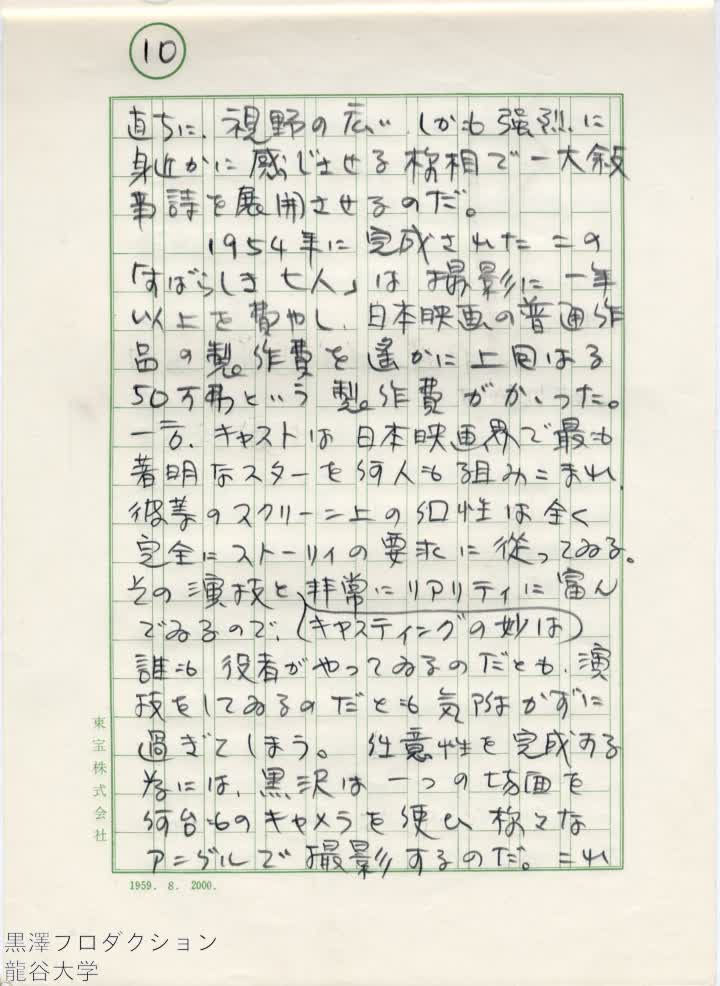 10
直ちに、視野の広い しかも強烈に
身近かに感じさせる様相で一大叙
事詩を展開させるのだ。
1954年に完成されたこの
「すばらしき七人」は撮影に一年
以上を費やし、日本映画の普通作
品の製作費を遙かに上回はる
50万弗という製作費がかゝった。
一方、キャストは日本映画界で最も
著明なスターを何人も組みこまれ、
彼等のスクリーン上の個性は全く
完全にストーリィの要求に従ってゐる。
その演技と非常にリアリティに富ん
でゐるので、(キャスティングの妙は)
誰も役者がやってゐるのだとも、演
技をしてゐるのだとも気附かずに
過ぎてしまう。任意性を完成する
為には、黒沢は一つの場面を
何台ものキャメラを使ひ様々な
アングルで撮影するのだ。これ
東宝株式会社
1959. 8. 2000.
黒澤プロダクション
龍谷大学